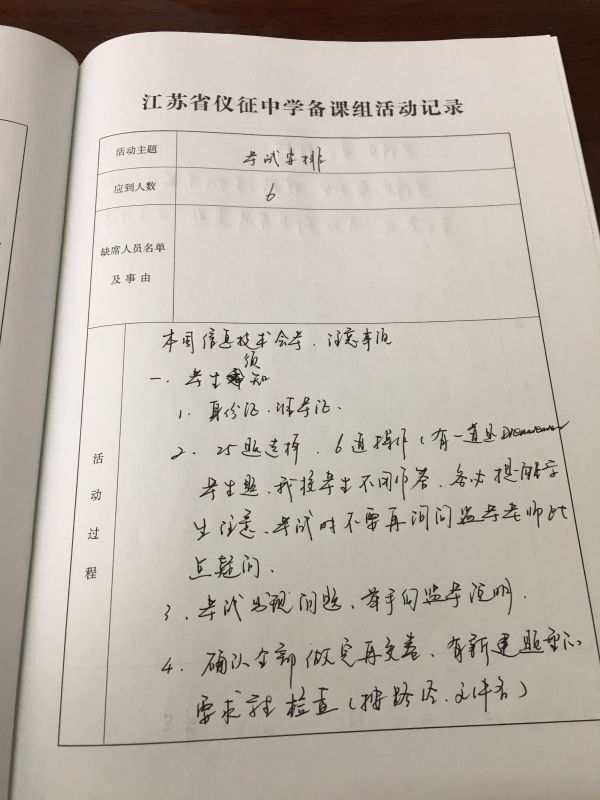 江苏省仪征中学备课组活动记录
活动主题
考试安排
应到人数
6
缺席人员名单
及事由
活动过程
本周信息技术会考、注意事项
一、考生须知
1、身份证、准考证、
2、25题选择、6道操作(有一道是Dreamweaver
考生题、我校考生不用作答、务必提醒学
生注意、考试时不要再询问监考老师此
点疑问、
3、考试发现问题、举手向监考说明、
4、确认全部做完再交卷、有新建题型的
要求学生检查(按路径、文件名)